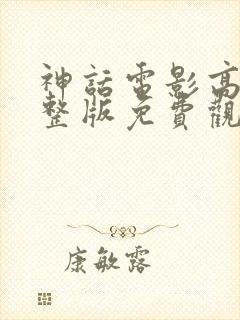 神話電影高
整版免費觀
康敏露